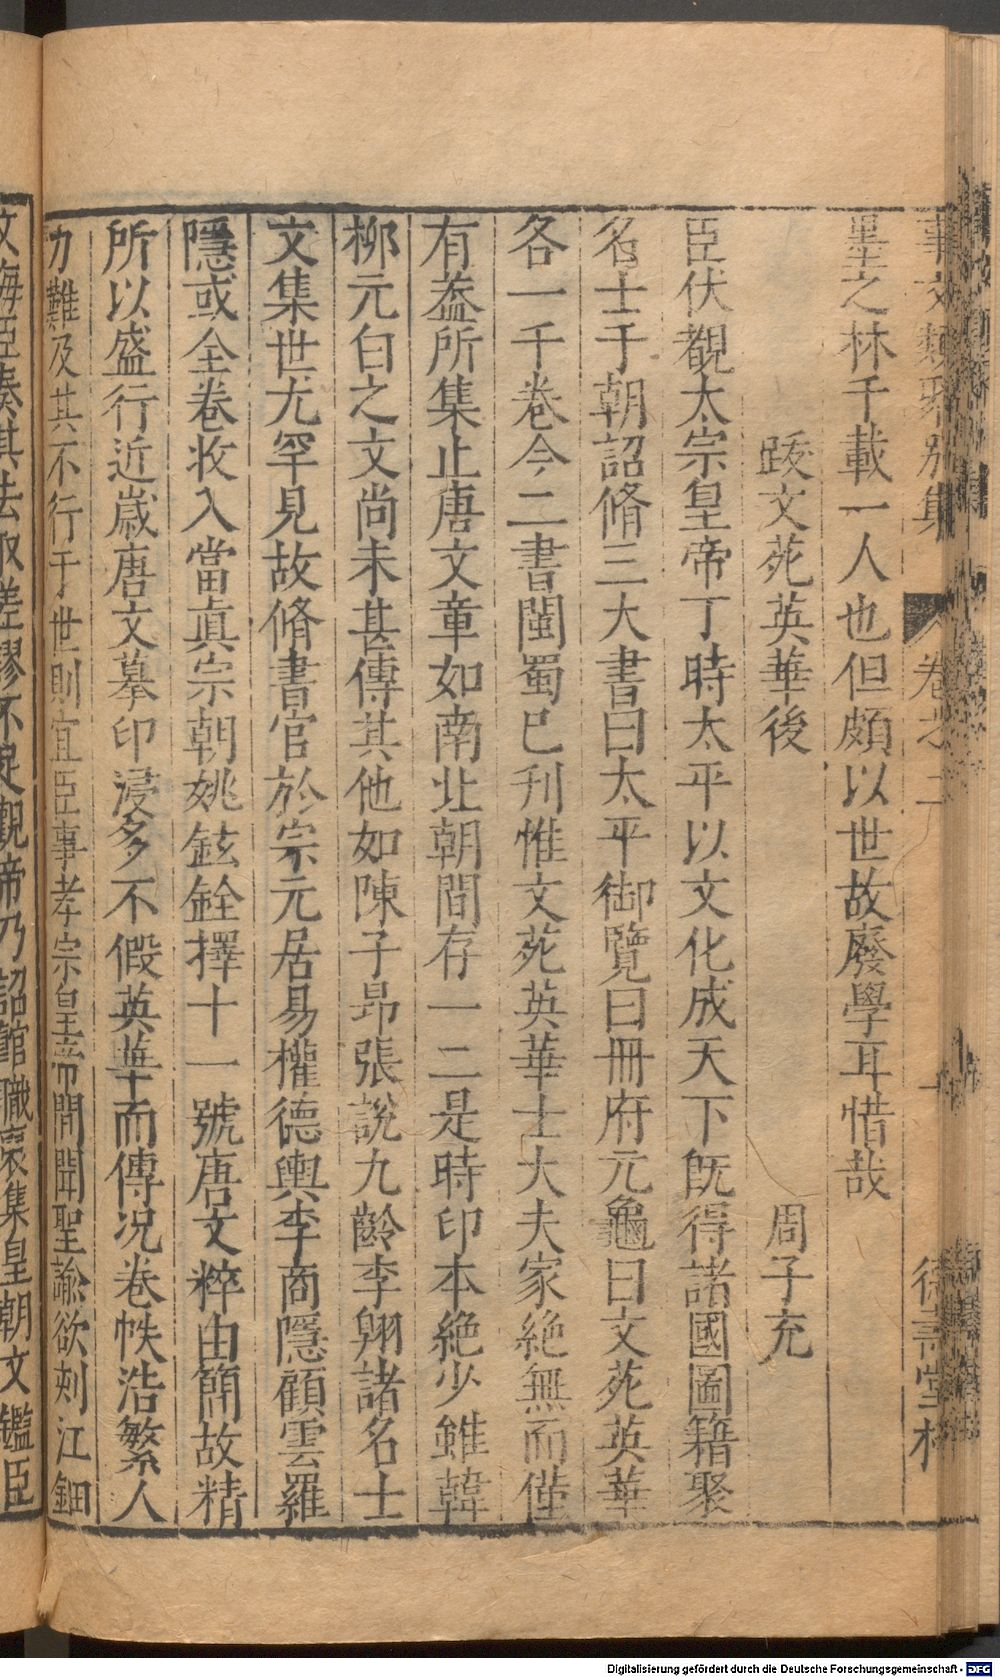 事文類聚別集 卷之二 德壽堂梓
墨之林千載一人也但頗以世故廢學耳惜哉
跋文苑英華後 周子充
臣伏覩太宗皇帝丁時太平以文化成天下旣得諸國圖籍聚
名士于朝詔脩三大書曰太平御覽曰冊府元龜曰文苑英華
各一千卷今二書閩蜀已刋惟文苑英華士大夫家絶無而僅
有葢所集止唐文章如南北朝間存一二是時印本絶少雖韓
柳元白之文尚未甚傳其他如陳子昻張說九齡李翺諸名士
文集世尤罕見故脩書官於宗元居易權德輿李商隱顧雲羅
隱或全卷收入當眞宗朝姚鉉銓擇十一號唐文粹由簡故精
所以盛行近嵗唐文摹印浸多不假英華而傳况卷帙浩繁人
力難及其不行于世則宜臣事孝宗皇帝間聞聖諭欲刻江鈿
文海臣奏其去取差謬不足觀帝乃詔館職裒集皇朝文鑑臣
Digitalisierung gefördert durch die Deutsche Forschungsgemeinschaft - DFG